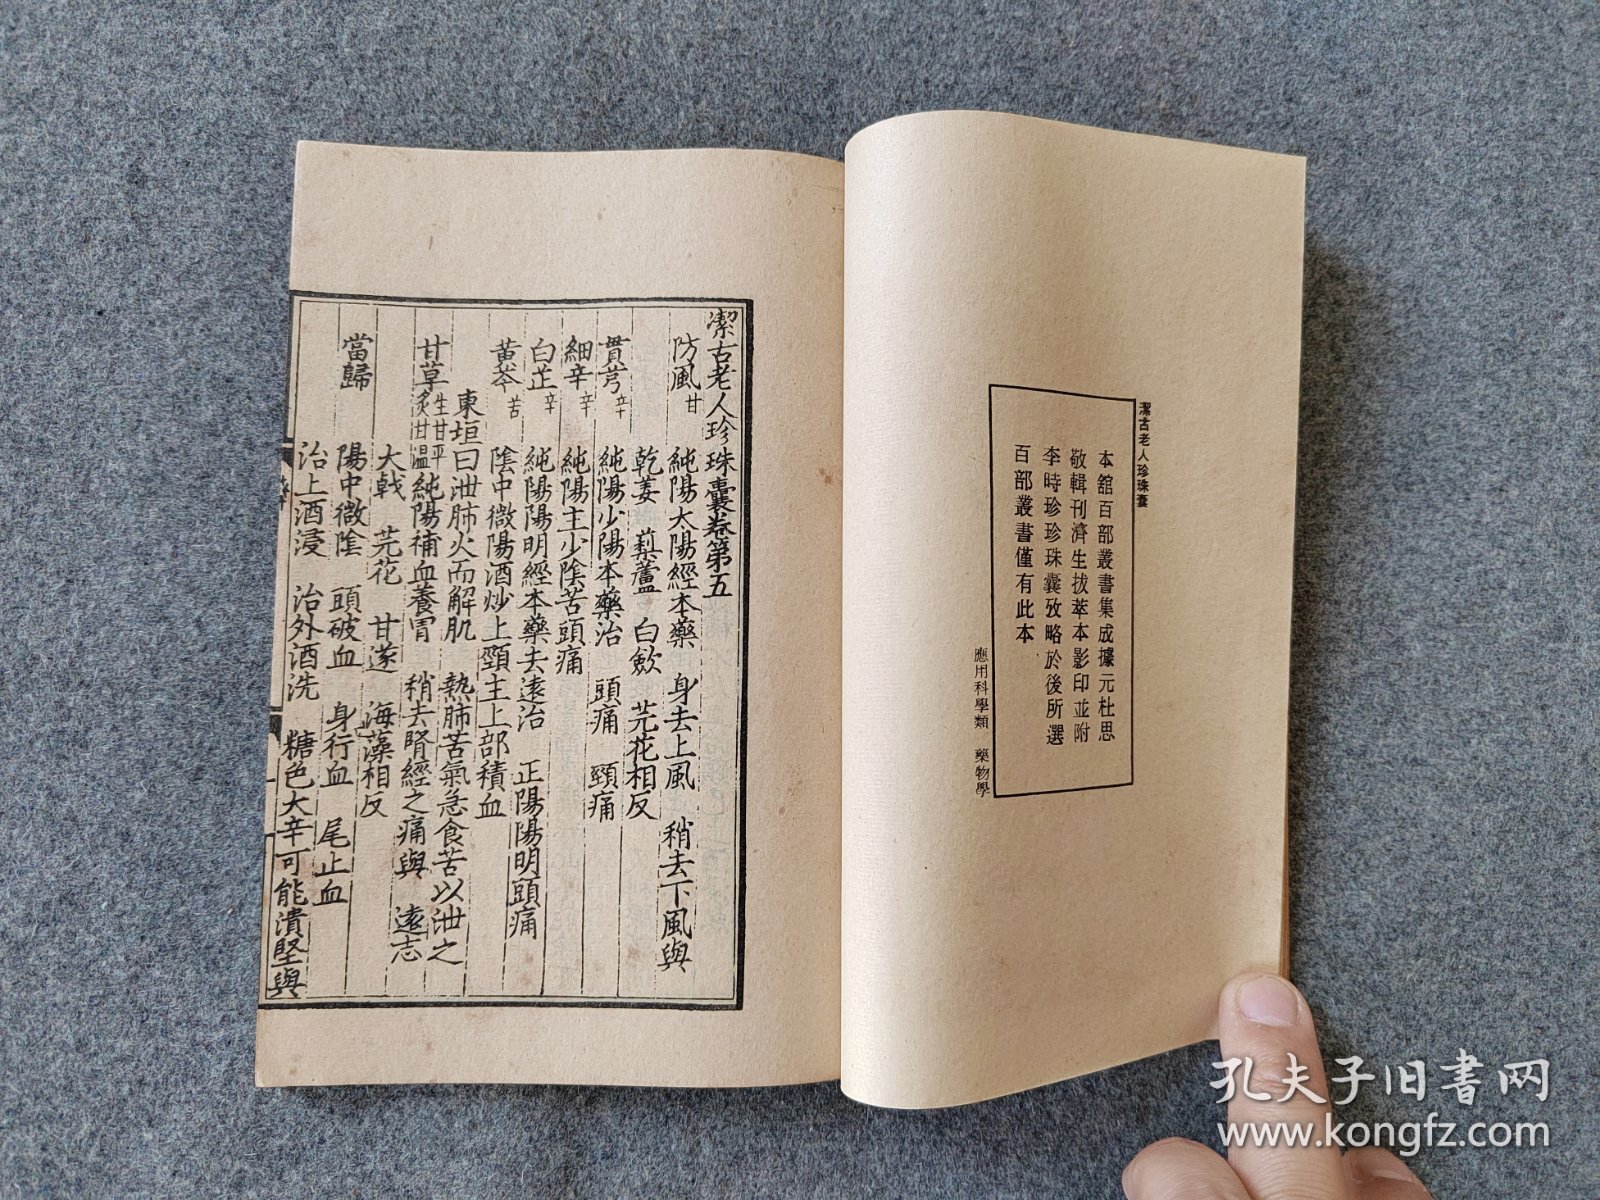 潔古老人珍珠囊
本舘百部叢書集成據元杜思
敬輯刊濟生拔萃本影印並附
李時珍珍珠囊攷略於後所選
百部叢書僅有此本
應用科學類　藥物學
潔古老人珍珠囊卷第五
防風甘　純陽太陽經本藥　身去上風　稍去下風與
乾姜　藜蘆　白歛　芫花相反
貫芎辛　純陽少陽本藥治　頭痛　頸痛
細辛辛　純陽主少陰苦頭痛
白芷辛　純陽陽明經本藥去遠治　正陽陽明頭痛
黄芩苦　陰中微陽酒炒上頸主上部積血
東垣曰泄肺火而解肌　熱肺苦氣急食苦以泄之
甘草生甘平炙甘温純陽補血養胃　稍去腎經之痛與　遠志
大戟　芫花　甘遂　海藻相反
當歸　陽中微陰　頭破血　身行血　尾止血
治上酒浸　治外酒洗　糖色大辛可能潰堅與
孔夫子旧书网
www.kongfz.com